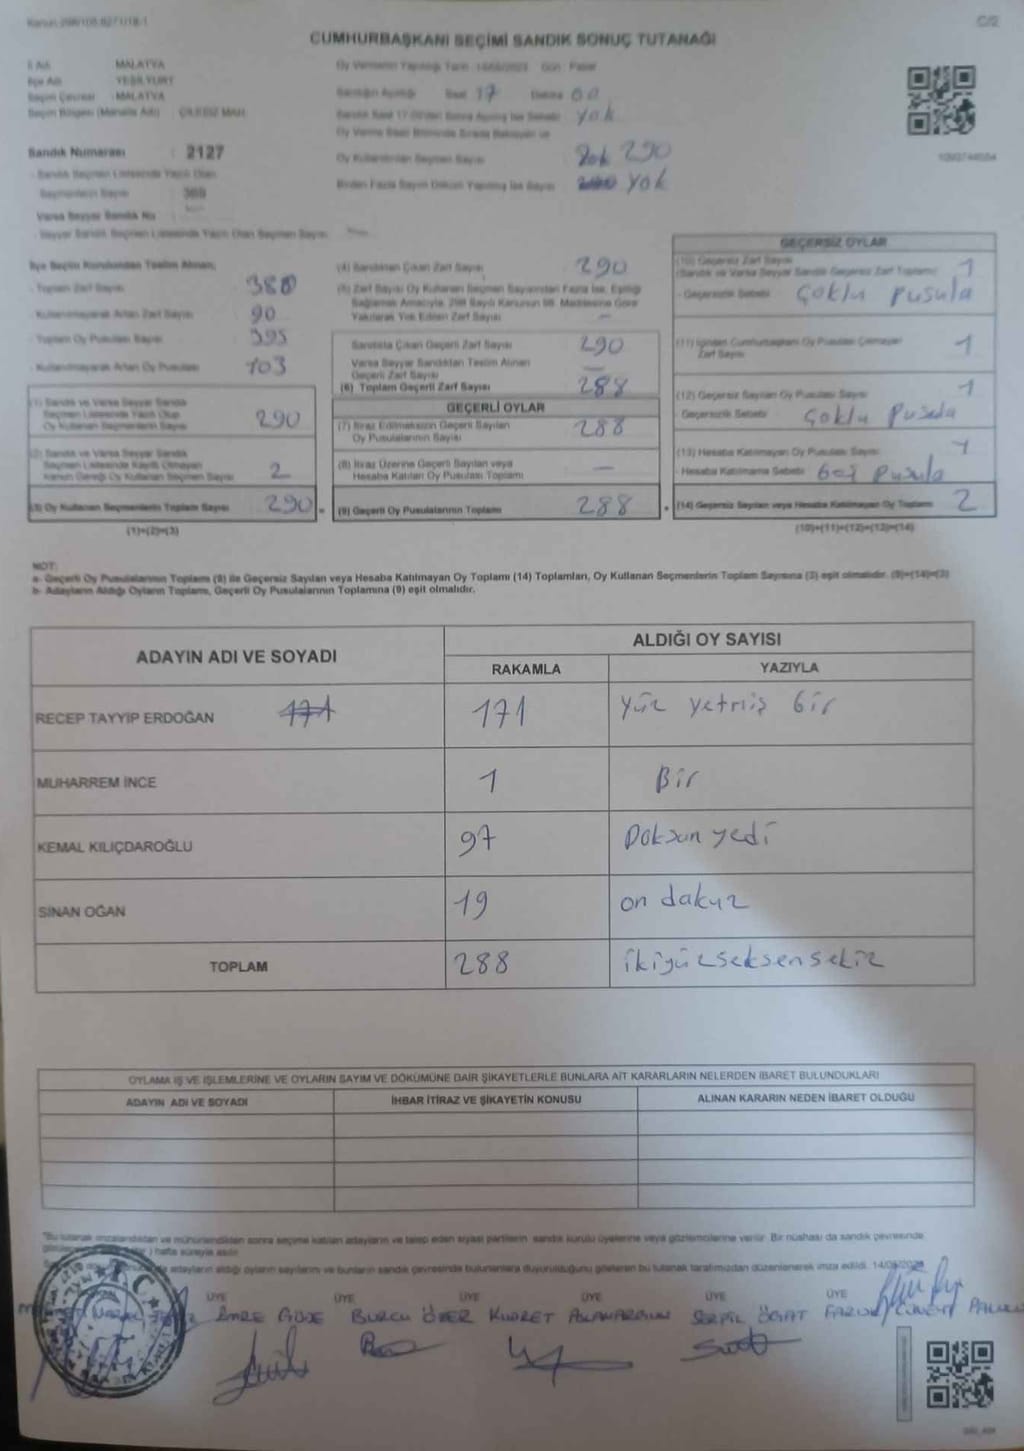 C/2
CUMHURBAŞKANI SEÇİMİ SANDIK SONUÇ TUTANAĞI
İl Adı : MALATYA
İlçe Adı : YEŞİLYURT
Seçim Çevresi : MALATYA
Seçim Bölgesi (Mahalle Adı) : ÇİLESİZ MAH.
Sandık Numarası : 2127
- Sandık Seçmen Listesinde Yazılı Olan
Seçmenlerin Sayısı : 369
Varsa Seyyar Sandık No
- Seyyar Sandık Seçmen Listesinde Yazılı Olan Seçmen Sayısı
Oy Vermenin Yapıldığı Tarih : 14/05/2023 Gün : Pazar
Sandığın Açıldığı Saat 17 Dakika 00
yok
Oy Kullandırılan Seçmen Sayısı 290
Birden Fazla Sayım Döküm Yapılmış İse Sayısı yok
İlçe Seçim Kurulundan Teslim Alınan;
- Toplam Zarf Sayısı 380
- Kullanılmayarak Artan Zarf Sayısı 90
- Toplam Oy Pusulası Sayısı 395
- Kullanılmayarak Artan Oy Pusulası 103
(1) Sandık ve Varsa Seyyar Sandık
Seçmen Listesinde Yazılı Olup
Oy Kullanan Seçmenlerin Sayısı 290
(2) Sandık ve Varsa Seyyar Sandık
Seçmen Listesinde Kayıtlı Olmayan
Kanun Gereği Oy Kullanan Seçmen Sayısı 2
(3) Oy Kullanan Seçmenlerin Toplam Sayısı 290
(1)+(2)=(3)
(4) Sandıktan Çıkan Zarf Sayısı 290
(5) Zarf Sayısı Oy Kullanan Seçmen Sayısından Fazla İse, Eşitliği
Sağlamak Amacıyla, 298 Sayılı Kanunun 98. Maddesine Göre
Yakılarak Yok Edilen Zarf Sayısı –
Sandıkta Çıkan Geçerli Zarf Sayısı 290
Varsa Seyyar Sandıktan Teslim Alınan
Geçerli Zarf Sayısı –
(6) Toplam Geçerli Zarf Sayısı 288
GEÇERLİ OYLAR
(7) İtiraz Edilmeksizin Geçerli Sayılan
Oy Pusulalarının Sayısı 288
(8) İtiraz Üzerine Geçerli Sayılan veya
Hesaba Katılan Oy Pusulası Toplamı –
(9) Geçerli Oy Pusulalarının Toplamı 288
GEÇERSİZ OYLAR
(10) Geçersiz Zarf Sayısı
(Sandık ve Varsa Seyyar Sandık Geçersiz Zarf Toplamı) 1
- Geçersizlik Sebebi : Çoklu pusula
(11) İçinden Cumhurbaşkanı Oy Pusulası Çıkmayan
Zarf Sayısı 1
(12) Geçersiz Sayılan Oy Pusulası Sayısı 1
- Geçersizlik Sebebi : Çoklu Pusula
(13) Hesaba Katılmayan Oy Pusulası Sayısı 1
- Hesaba Katılmama Sebebi : boş pusula
(14) Geçersiz Sayılan veya Hesaba Katılmayan Oy Toplamı 2
(10)+(11)+(12)+(13)=(14)
NOT:
a- Geçerli Oy Pusulalarının Toplamı (9) ile Geçersiz Sayılan veya Hesaba Katılmayan Oy Toplamı (14) Toplamları, Oy Kullanan Seçmenlerin Toplam Sayısına (3) eşit olmalıdır. (9)+(14)=(3)
b- Adayların Aldığı Oyların Toplamı, Geçerli Oy Pusulalarının Toplamına (9) eşit olmalıdır.
ADAYIN ADI VE SOYADI
ALDIĞI OY SAYISI
RAKAMLA YAZIYLA
RECEP TAYYİP ERDOĞAN 171 171 yüz yetmiş bir
MUHARREM İNCE 1 Bir
KEMAL KILIÇDAROĞLU 97 Doksan yedi
SİNAN OĞAN 19 on dakuz
TOPLAM 288 ikiyüzseksensekiz
OYLAMA İŞ VE İŞLEMLERİNE VE OYLARIN SAYIM VE DÖKÜMÜNE DAİR ŞİKAYETLERLE BUNLARA AİT KARARLARIN NELERDEN İBARET BULUNDUKLARI
ADAYIN ADI VE SOYADI İHBAR İTİRAZ VE ŞİKAYETİN KONUSU ALINAN KARARIN NEDEN İBARET OLDUĞU
*Bu tutanak imzalandıktan ve mühürlendikten sonra seçime katılan adayların ve talep eden siyasi partilerin sandık kurulu üyelerine veya gözlemcilerine verilir. Bir nüshası da sandık çevresinde
) hafta süreyle asılır.
adayların aldığı oyların sayılarını ve bunların sandık çevresinde bulunanlara duyurulduğunu gösteren bu tutanak tarafımızdan düzenlenerek imza edildi. 14/05/2023
ÜYE ÜYE ÜYE ÜYE ÜYE ÜYE
EMRE BURCU ÖZER KUDRET SERPİL